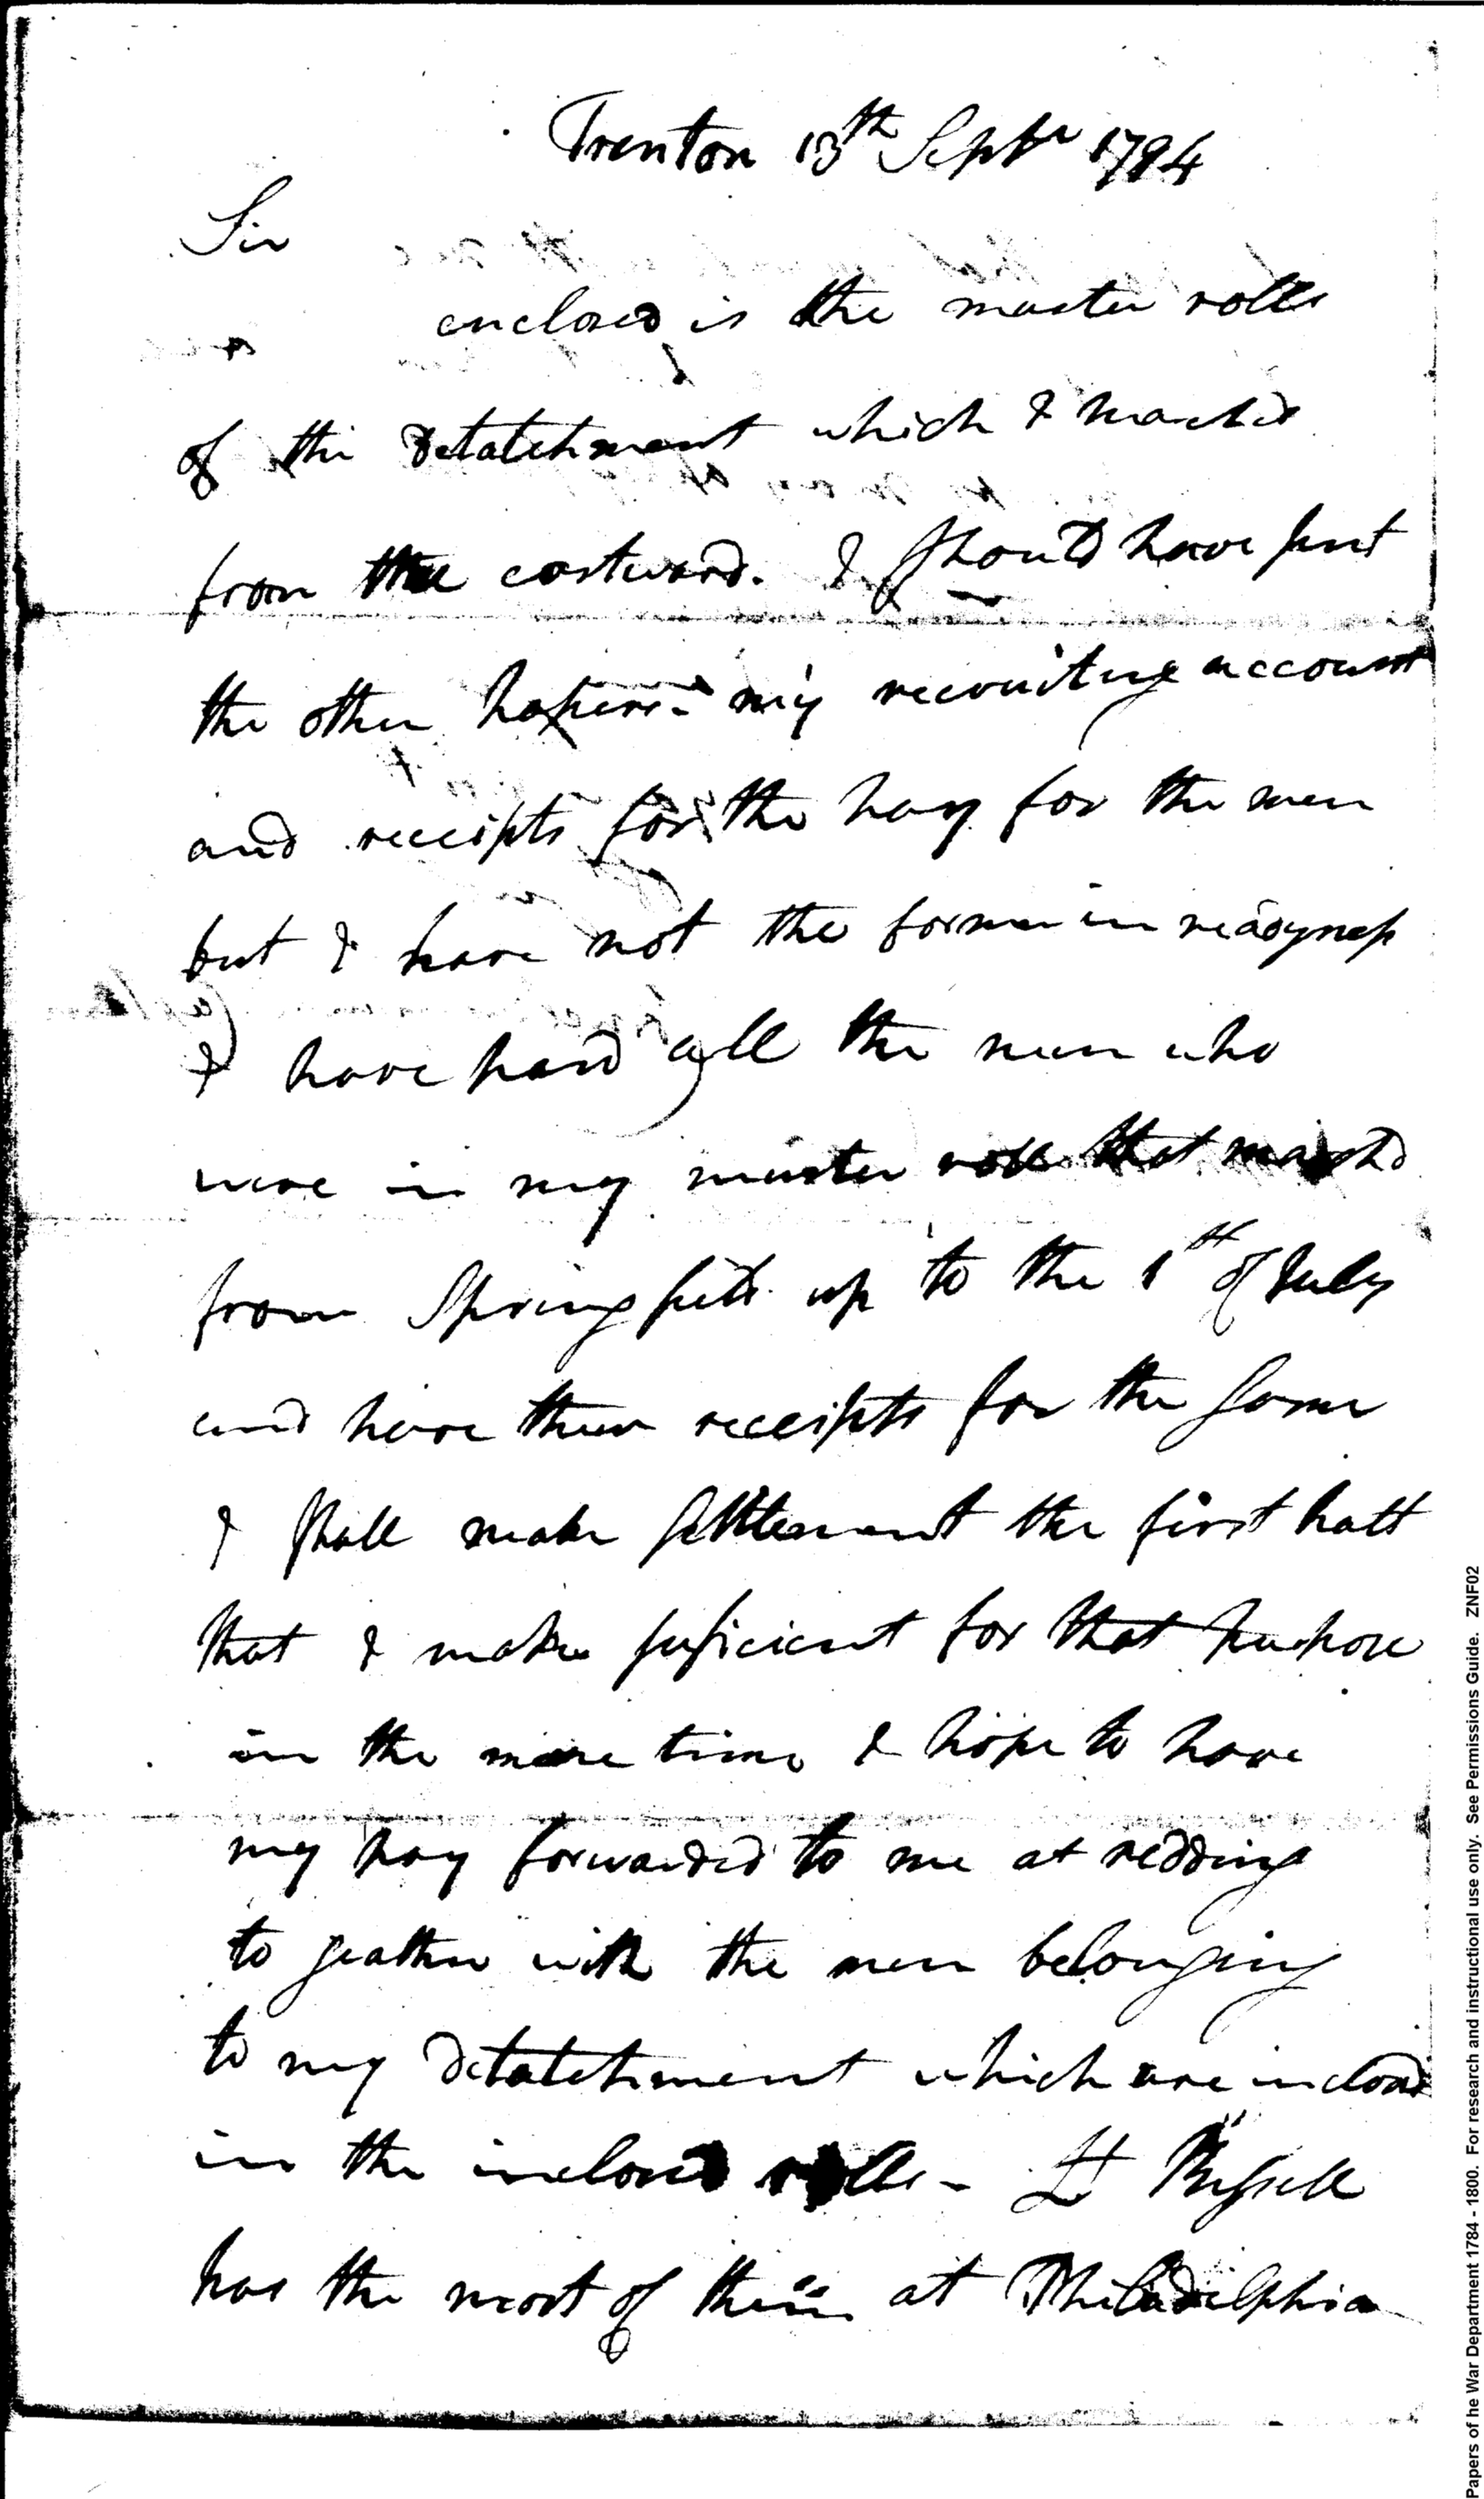 Trenton 13th Septr 1794
Sir
enclosed is the muster rolls
of the detatchment which I marchd
from the eastward. I should have sent
the other papers - my recruiting account
and receipts for the pay for the men
but I have not the former in readyness
I have paid all the men who
were in my muster roll that marchd
from Springfield up to the 1th of July
and have their receipts for the same
I shall make settlement the first halt
that I make suficient for that purpose
in the mene time I hope to have
my pay forwarded to me at redding
to geather with the men belonging
to my detatchment which are inclosd
in the inclosed rolls - Lt Bissell
has the most of them at Philadilphia
Papers of he War Department 1784 - 1800. For research and instructional use only. See Permissions Guide. ZNF02